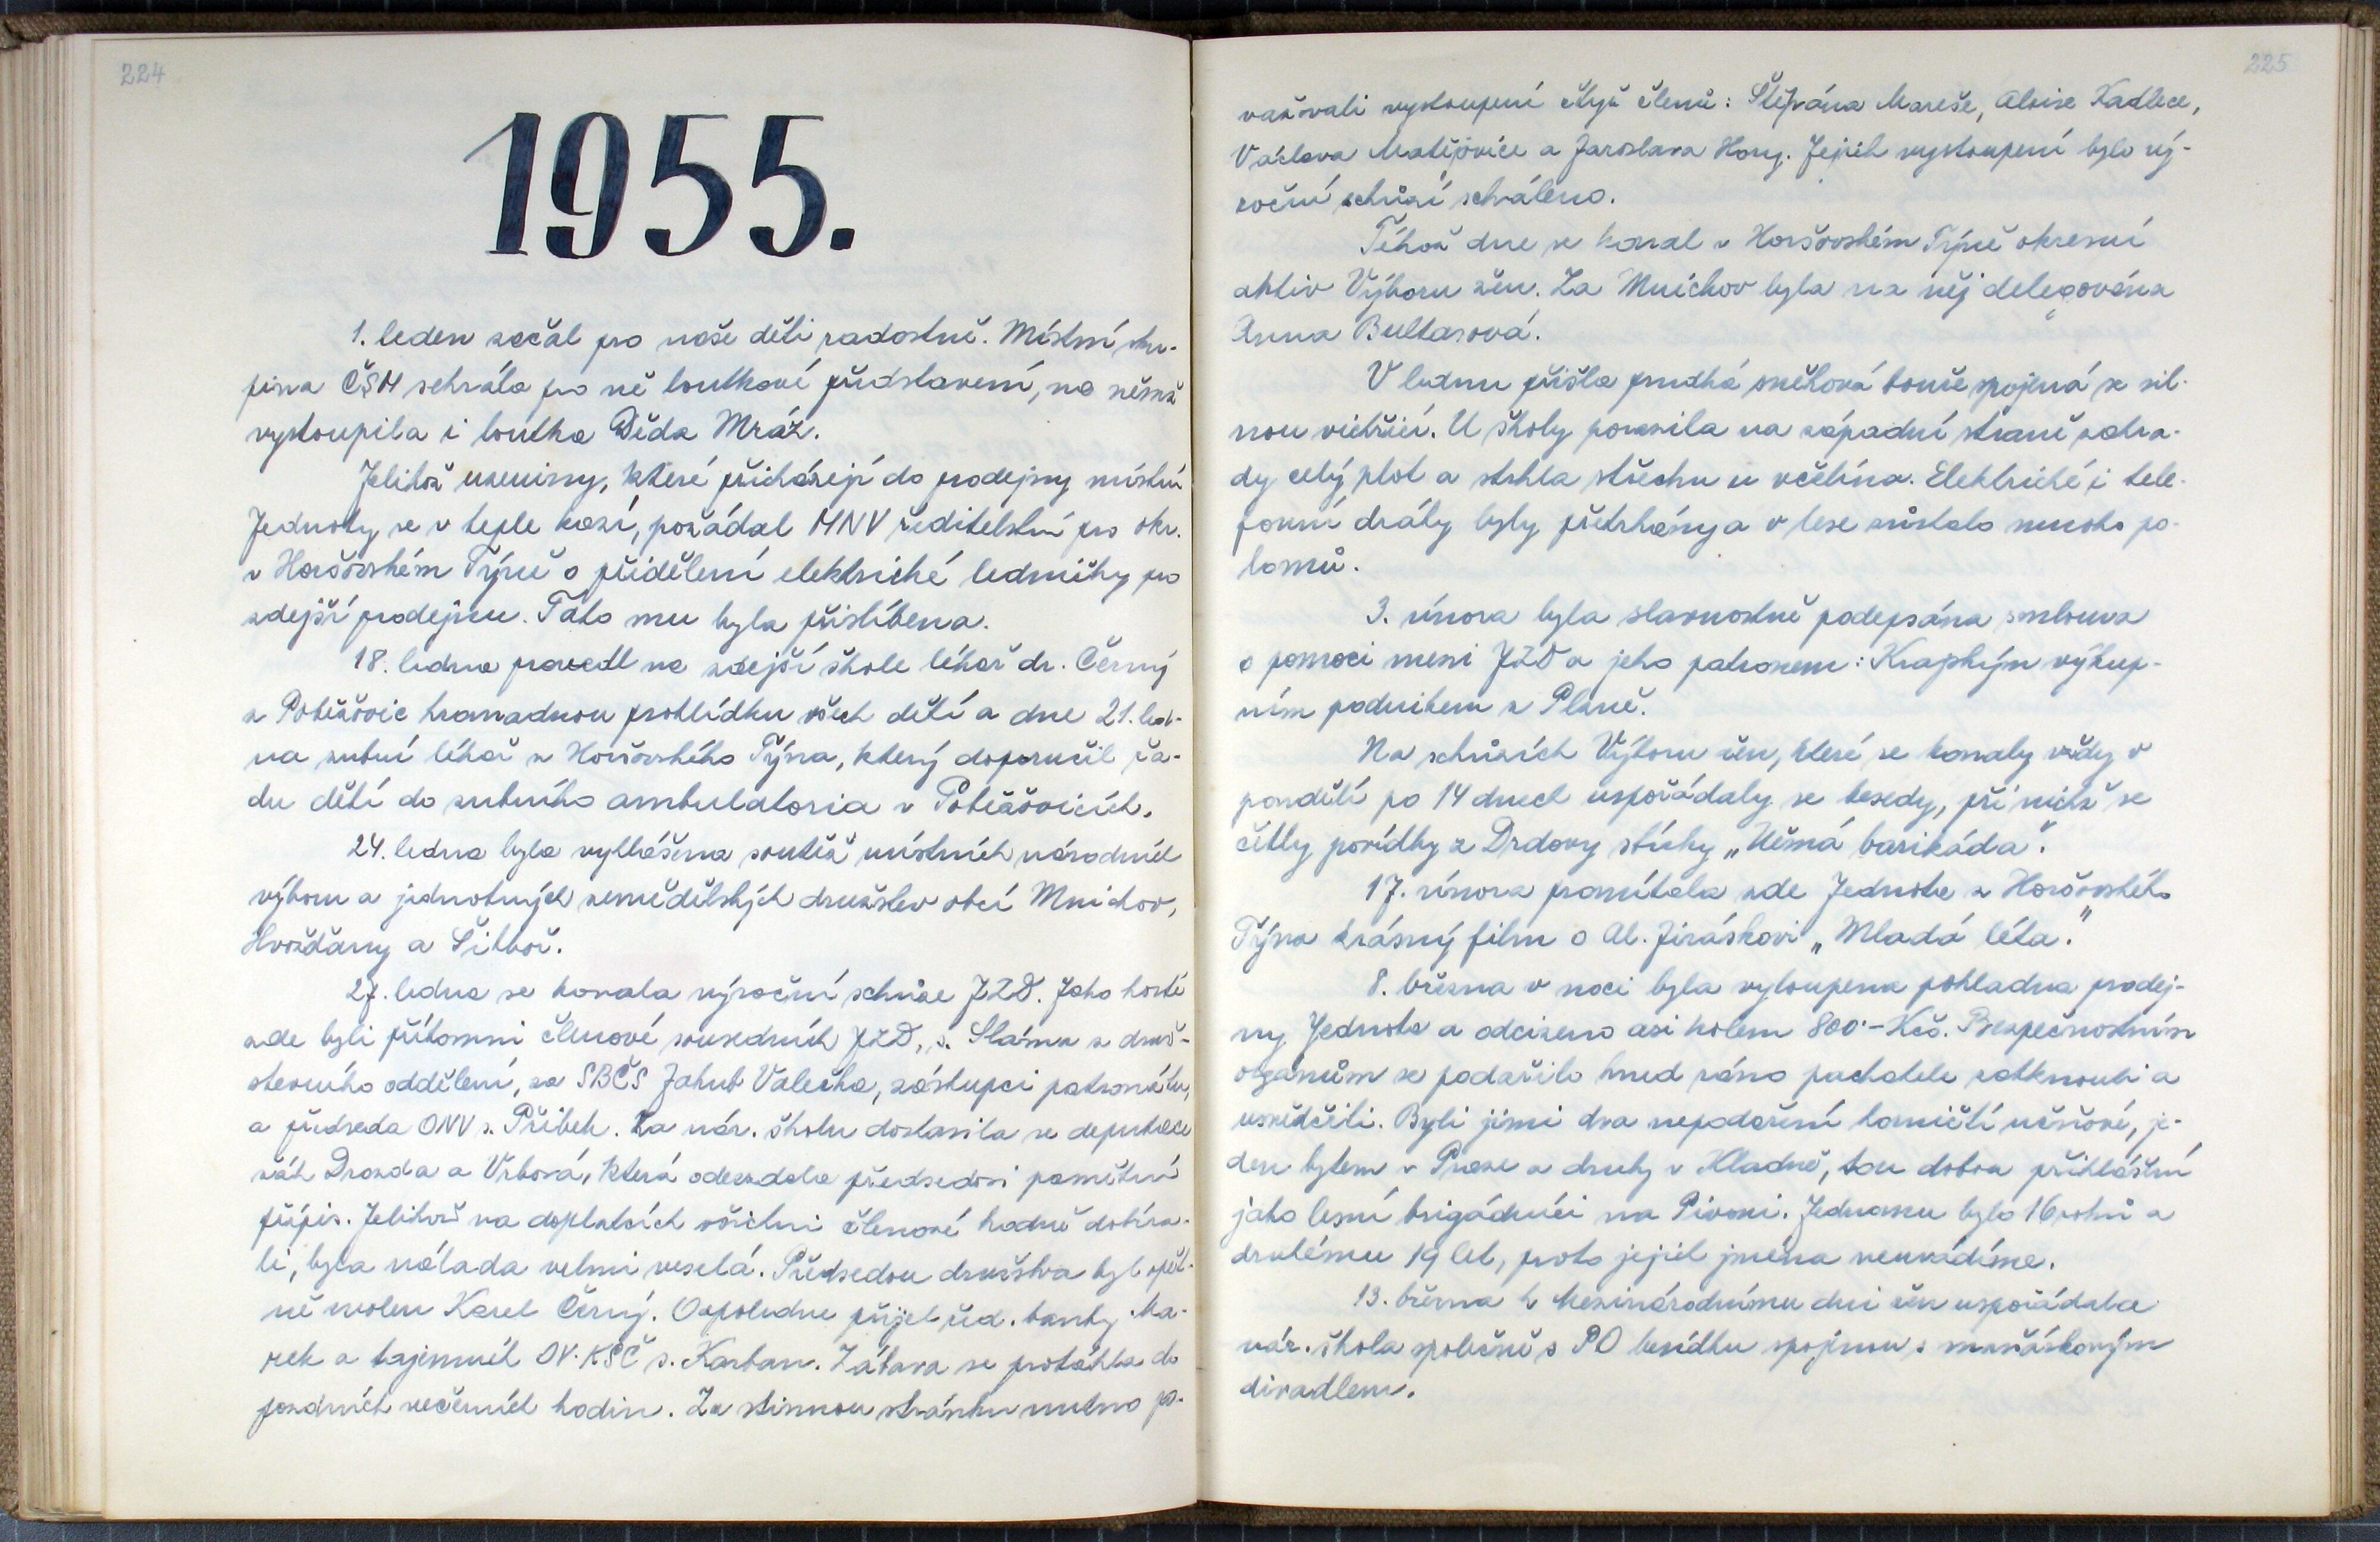 224
1955.
1. leden začal pro naše děti radostně. Místní sku-
pina ČSM sehrála pro ně loutkové představení, na němž
vystoupila i loutka Děda Mráz.
Jelikož uzeniny, které přicházejí do prodejny místní
Jednoty se v teple kazí, požádal MNV ředitelství pro okr.
v Horšovském Týně o přidělení elektrické ledničky pro
zdejší prodejnu. Tato mu byla přislíbena.
18. ledna provedl na zdejší škole lékař dr. Černý
z Poběžovic hromadnou prohlídku všech dětí a dne 21. led-
na zubní lékař z Horšovského Týna, který doporučil řa-
du dětí do zubního ambulatoria v Poběžovicích.
24. ledna byla vyhlášena soutěž místních národních
výboru a jednotných zemědělských družstev obcí Mnichov,
Hvožďany a Šitboř.
27. ledna se konala výroční schůze JZD. Jako hosté
zde byli přítomni členové sousedních JZD, s. Sláma z druž-
stevního oddělení, za SBČS Jakub Valečka, zástupci patronátu,
a předseda ONV s. Přibek. Za nár. školu dostavila se deputace
žák Drozda a Vrbová, která odevzdala předsedovi pamětní
přípis. Jelikož na doplatcích všichni členové hodně dobíra-
li, byla nálada velmi veselá. Předsedou družstva byl opět-
ně zvolen Karel Černý. Odpoledne přijel řed. banky Ma-
rek a tajemník OV. KSČ s. Karban. Zábava se protáhla do
pozdních večerních hodin. Za stinnou stránku nutno po-
225
važovali vystoupení čtyř členů: Štěpána Mareše, Aloise Kadlece,
Václava Matějovice a Jaroslava Hory. Jejich vystoupení bylo vý-
roční schůzí schváleno.
Téhož dne se konal v Horšovském Týně okresní
aktiv Výboru žen. Za Mnichov byla na něj delegována
Anna Bultasová.
V lednu přišla prudká sněhová bouře spojená se sil-
nou vichřicí. U školy porazila na západní straně zahra-
dy celý plot a strhla střechu u včelína. Elektrické i tele-
fonní dráty byly přetrhány a v lese zůstalo mnoho po-
lomů.
3. února byla slavnostně podepsána smlouva
o pomoci mezi JZD a jeho patronem: Krajským výkup-
ním podnikem z Plzně.
Na schůzích Výboru žen, které se konaly vždy v
pondělí po 14 dnech uspořádaly se besedy, při nichž se
četly povídky z Drdovy sbírky „Němá barikáda".
17. února promítala zde Jednota z Horšovského
Týna krásný film o Al. Jiráskovi „Mladá léta."
8. března v noci byla vyloupena pokladna prodej-
ny Jednota a odcizeno asi kolem 800·- Kčs. Bezpečnostním
orgánům se podařilo hned ráno pachatele zatknouti a
usvědčiti. Byli jimi dva nepodaření horničtí učňové, je-
den bytem v Praze a druhý v Kladně, tou dobou přihlášení
jako lesní brigádníci na Pivoni. Jednomu bylo 16 roků a
druhému 19 let, proto jejich jména neuvádíme.
13. března k Mezinárodnímu dni žen uspořádala
nár. škola společně s PO besídku spojenou s maňáskovým
divadlem.